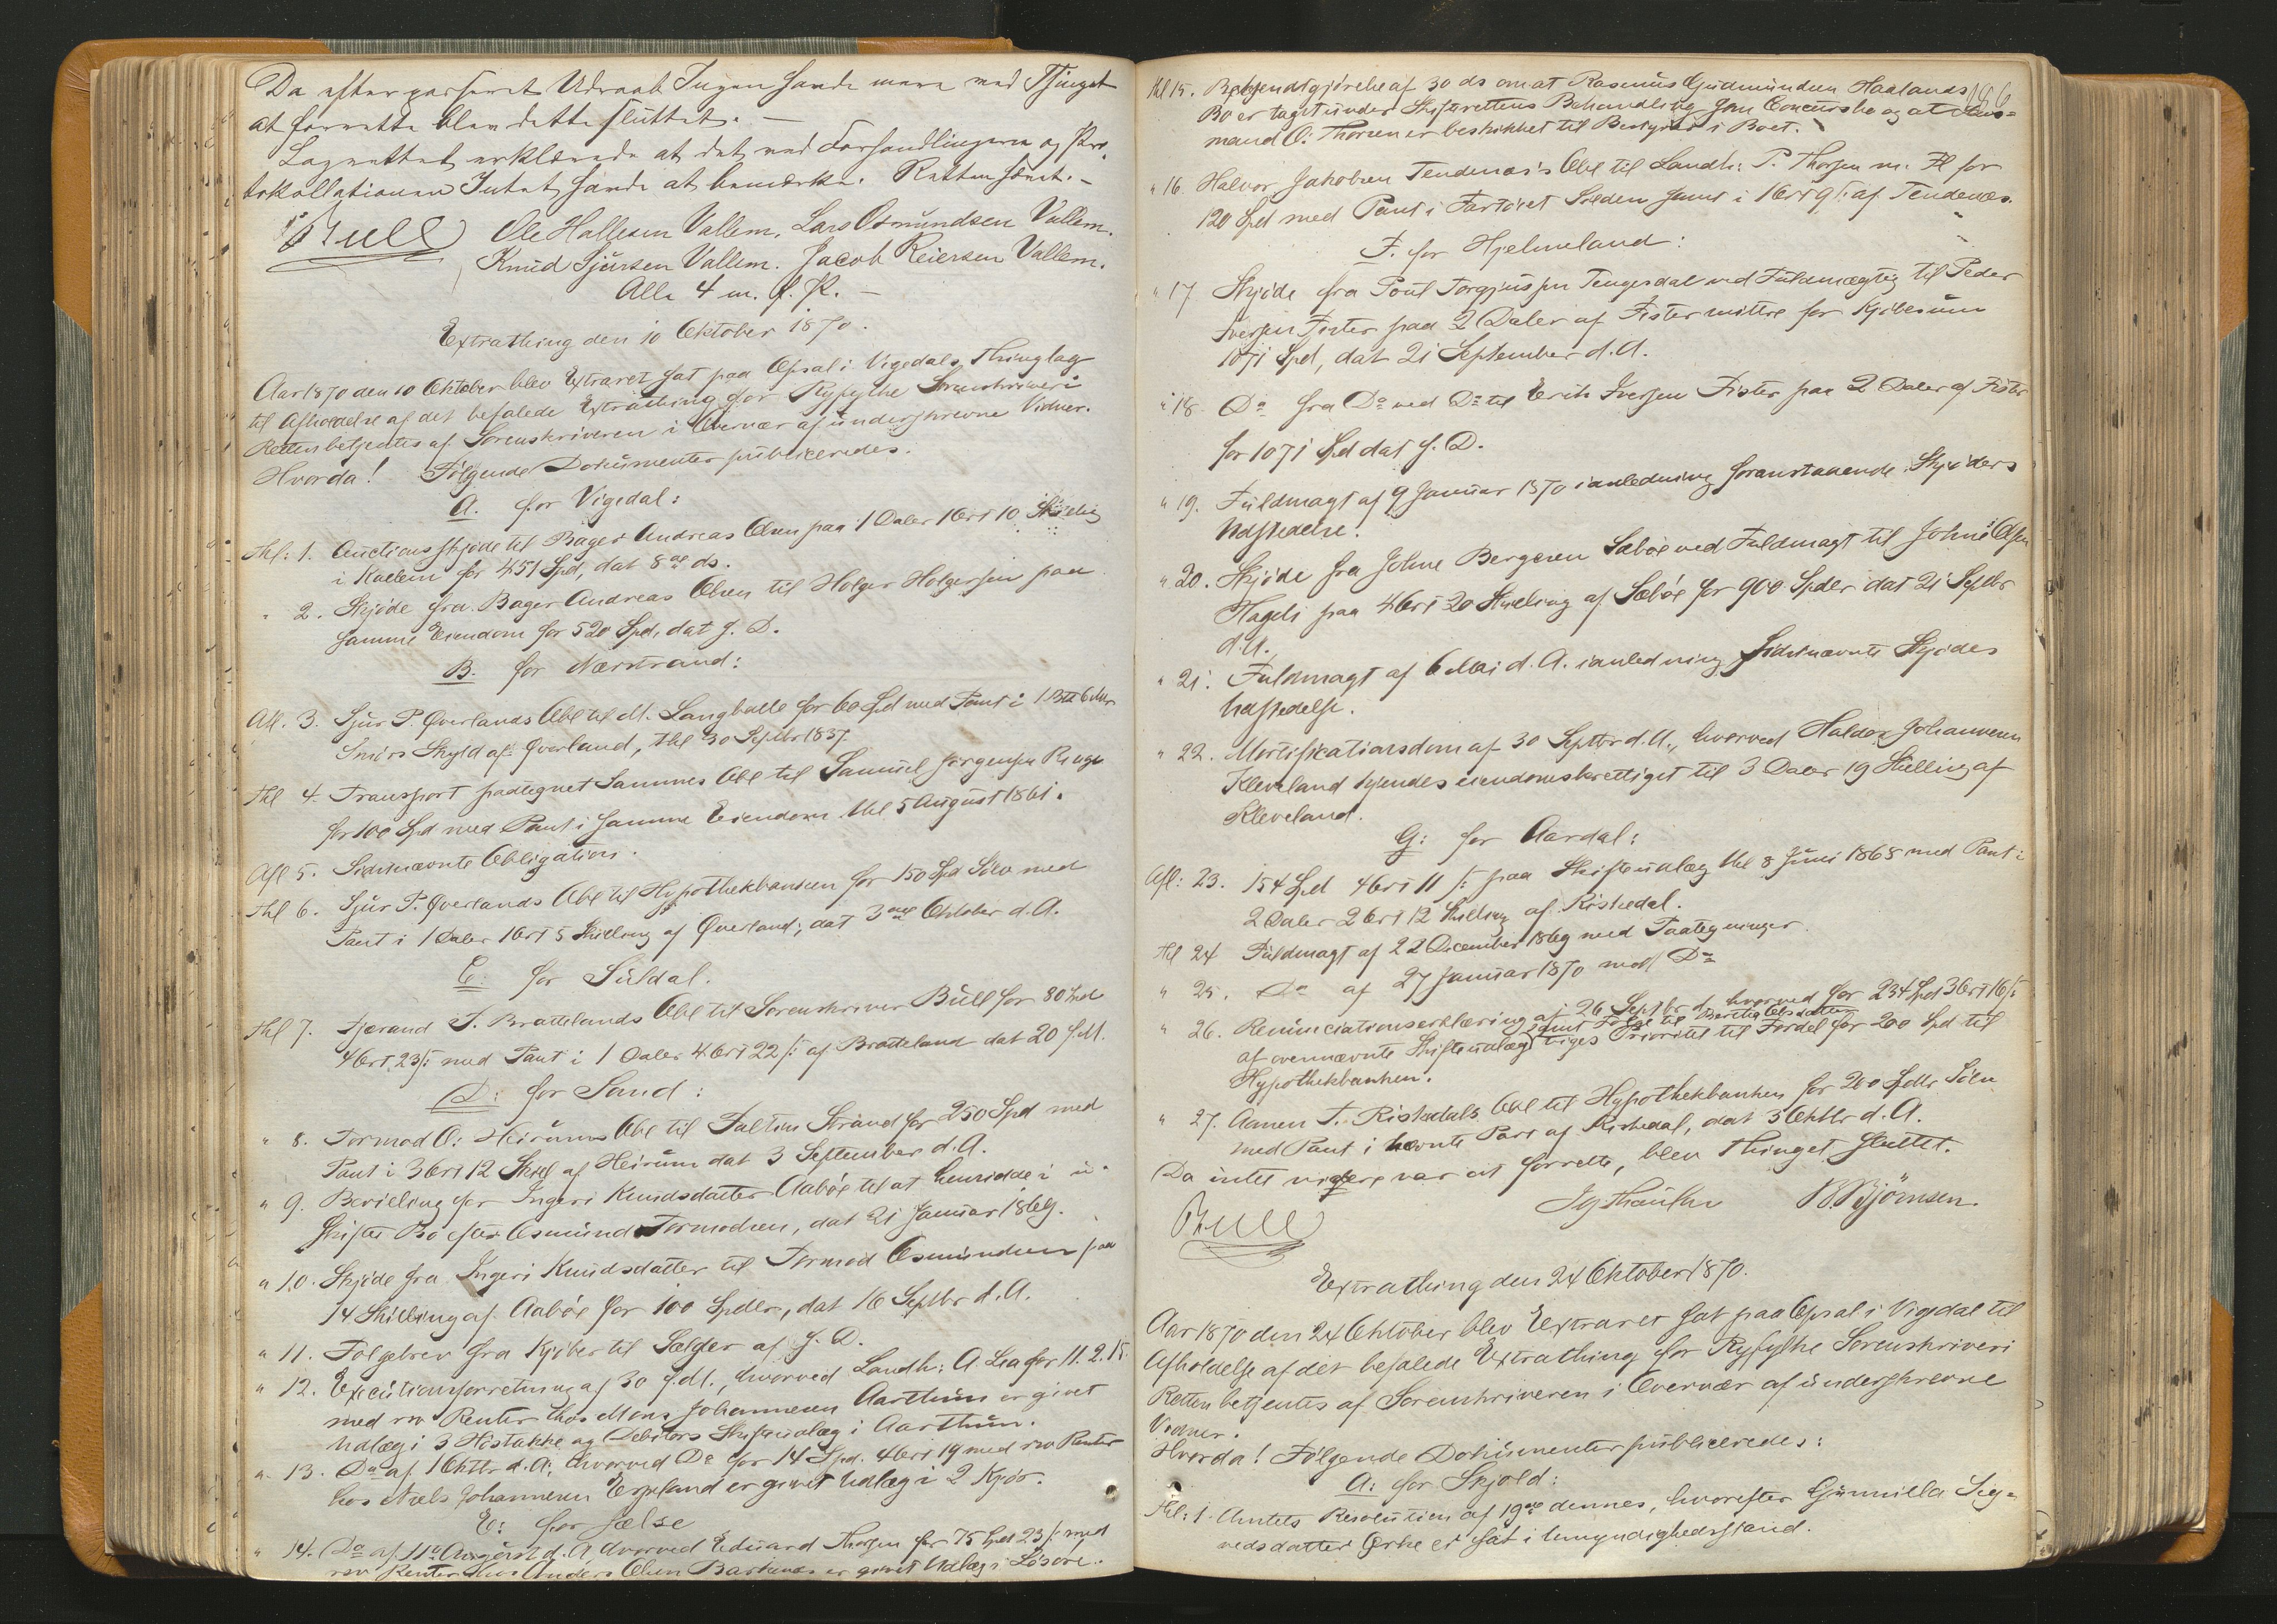 Da efter passeret Udraab Ingen havde mere ved Thinget
at forrette blev dette sluttet. —
Lagrettet erklærede at det ved Forhandlingerne og Pro-
tokollationen Intet havde at bemærke. Retten hævet. –
Bull Ole Hallesen Vallem. Lars Osmundsen Vallem.
Knud Sjursen Vallem. Jacob Reiersen Vallem.
Alle 4 m. f. P. —
Extrathing den 10 Oktober 1870.
Aar 1870 den 10 Oktober blev Extraret sat paa Opsal i Vigedals Thinglag
til Afholdelse af det befalede Extrathing for Ryfylke Sorenskriveri
Retten betjentes af Sorenskriveren i Overvær af underskrevne Vidner.
Hvorda! Følgende Dokumenter publiceredes.
A. for Vigedal:
Thl: 1. Auctionsskjøde til Bager Andreas Olsen paa 1 Daler 1 Ort 10 Skilling
i for 451 Spd, dat 8de ds.
" 2. Skjøde fra Bager Andreas Olsen til Holger Holgersen paa
samme Eiendom for 520 Spd, dat s. D.
B. for Nærstrand:
Afl. 3. Sjur P. Qverlands Obl til M. Langballe for 60 Spd med Pant i 1 6 Mrk
Smørs Skyld af Qverland, thl 30 Septbr 1837.
Thl 4. Transport paategnet Sammes Obl til Samuel Jørgensen
for 100 Spd med Pant i samme Eiendom thl 5 August 1861.
Afl 5. Sidstnævnte Obligation.
Thl 6. Sjur P. Qverlands Obl til Hypothekbanken for 150 Spd Sølv med
Pant i 1 Daler 1 Ort 5 Skilling af Qverland, dat 3die Oktober d. A.
C. for Suldal.
Thl 7. Tjerand T. Brattelands Obl til Sorenskriver Bull for 80 Spd
4 Ort 23 s: med Pant i 1 Daler 4 Ort 22 s: af Bratteland dat 20 f. M.
D: for Sand:
" 8. Tormod O: Heirums Obl til Faltin Strand for 250 Spd med
Pant i 3 Ort 12 Skil af Heirum dat 3 September d. A.
" 9. Bevilling for Ingeri Knudsdatter Aabøe til at hensidde i u-
skiftet Bo efter Osmund Tormodsen, dat 21 Januar 1869.
" 10. Skjøde fra Ingeri Knudsdatter til Tormod Osmundsen paa
14 Skilling af Aabøe for 100 Spdlr, dat 16 Septbr d. A.
" 11. Følgebrev fra Kjøber til Sælger af s. D.
" 12. Executionsforretning af 30 f. M., hvorved Landh: A. Lea for 11. 2. 15.
med Renter hos Mons Johannesen Aarthun er givet
Udlæg i 3 Høstakke og Debitors Skifteudlæg i Aarthun.
" 13. Do af 1 Oktbr d. A. hvorved Do for 14 Spd. 4 Ort 19 med Renter
hos Niels Johannesen er givet Udlæg i 2 Kjør.
E: for Jælse
" 14. Do af 11te August d. A. hvorved Eduard Thorsen for 75 Spd 23 s: med
Renter hos Anders Olsen er givet Udlæg i Løsøre.
Thl 15. Bekjendtgjørelse af 30 ds om at Rasmus Gudmundsen Haalands
Bo er taget under Skifterettens Behandling som Concursbo og at Lens-
mand O: Thorsen er beskikket til Bestyrer i Boet.
" 16. Halvor Jakobsen Tendenæs's Obl til Landh: P. Thorsen m. Fl for
120 Spd med Pant i Fartøiet samt i 1 Ort 9 s: af Tendenæs.
F. for Hjelmeland:
" 17. Skjøde fra Poul Torgjussen Tengesdal ved Fuldmægtig til Peder
Iversen Fister paa 2 Daler af Fister mittre for Kjøbesum
1071 Spd, dat 21 September d. A.
" 18. Do fra Do ved Do til Erik Iversen Fister paa 2 Daler af Fister
for 1071 Spd dat s. D.
" 19. Fuldmagt af 9 Januar 1870 i anledning foranstaaende Skjøders
Udstedelse.
" 20. Skjøde fra Johne Bergesen Sæbøe ved Fuldmagt til Johne Olsen
Hageli paa 4 Ort 20 Skilling af Sæbøe for 900 Spdlr dat 21 Septbr
d. A.
" 21. Fuldmagt af 6 Mai d. A. i anledning sidstnævnte Skjødes
Udstedelse.
" 22. Mortifikationsdom af 30 Septbr d. A., hvorved Haldor Johannesen
Kleveland kjendes eiendomsberettiget til 3 Daler 19 Skilling af
Kleveland.
G: for Aardal:
Afl: 23. 154 Spd 4 Ort 11 s: paa Skifteudlæg thl 8 Juni 1868 med Pant i
2 Daler 2 Ort 12 Skilling af Riskedal.
Thl 24 Fuldmagt af 22 December 1869 med Paategninger.
" 25. Do af 27 Januar 1870 med Do
" 26. Renunciationserklæring af 26 Septbr d. hvorved for 234 Spd 3 Ort 16 s:
samt til Beretha Olsdatter
af ovennævnte Skifteudlæg viges Prioritet til Fordel for 200 Spd til
Hypothekbanken.
" 27. Aanen T. Riskedals Obl til Hypothekbanken for 200 Spdlr Sølv
med Pant i nævnte Part af Riskedal, dat 3 Oktbr d. A.
Da intet videre var at forrette, blev Thinget sluttet.
Bull B. Bjørnsen.
Extrathing den 24 Oktober 1870.
Aar 1870 den 24 Oktober blev Extraret sat paa Opsal i Vigedal til
Afholdelse af det befalede Extrathing for Ryfylke Sorenskriveri
Retten betjentes af Sorenskriveren i Overvær af underskrevne
Vidner.
Hvorda! Følgende Dokumenter publiceredes:
A: for Skjold:
Thl: 1. Amtets Resolution af 19de dennes, hvorefter Gunnilla Sig-
vedsdatter Ørke er sat i Umyndighedsstand.